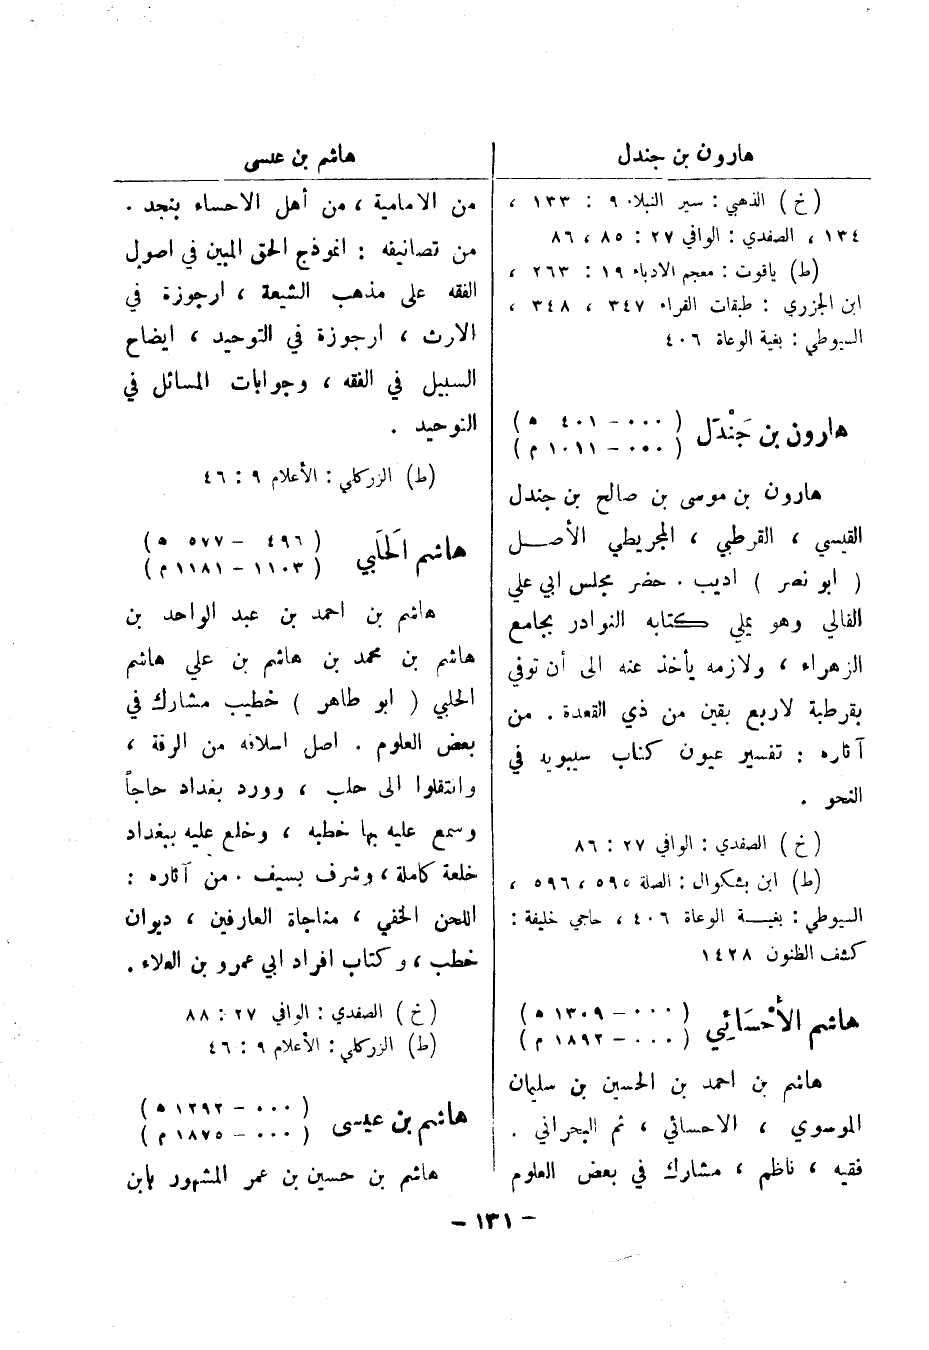 هارون بن جندل
(خ) الذهبي : سير النبلاء ٩ : ١٣٣ ،
١٣٤ ، الصفدي : الوافي ٢٧ : ٨٥ ، ٨٦
(ط) ياقوت : معجم الادباء ١٩ : ٢٦٣ ،
ابن الجزري : طبقات القراء ٣٤٧ ، ٣٤٨ ،
السيوطي : بغية الوعاة ٤٠٦
هارون بن جَنْدَل ( ٠٠٠ – ٤٠١ هـ )
( ٠٠٠ – ١٠١١ م )
هارون بن موسى بن صالح بن جندل
القيسي ، القرطبي ، المجريطي الأصـل
( ابو نصر ) اديب . حضر مجلس ابي علي
القالي وهو يملي كتابه النوادر بجامع
الزهراء ، ولازمه يأخذ عنه الى أن توفي
بقرطبة لاربع بقين من ذي القعدة . من
آثاره : تفسير عيون كتاب سيبويه في
النحو .
(خ) الصفدي : الوافي ٢٧ : ٨٦
(ط) ابن بشكوال : الصلة ٥٩٥ ، ٥٩٦ ،
السيوطي : بغيـة الوعاة ٤٠٦ ، حاجي خليفة :
كشف الظنون ١٤٢٨
هاشم الأَحْسَائِي ( ٠٠٠ – ١٣٠٩ هـ )
( ٠٠٠ – ١٨٩٢ م )
هاشم بن احمد بن الحسين بن سليمان
الموسوي ، الاحسائي ، ثم البحراني .
فقيه ، ناظم ، مشارك في بعض العلوم
هاشم بن عيسى
من الامامية ، من أهل الاحساء بنجد .
من تصانيفه : انموذج الحق المبين في اصول
الفقه على مذهب الشيعة ، ارجوزة في
الارث ، ارجوزة في التوحيد ، ايضاح
السبيل في الفقه ، وجوابات المسائل في
التوحيد .
(ط) الزركلي : الأعلام ٩ : ٤٦
هاشم الحَلَبي ( ٤٩٦ – ٥٧٧ هـ )
( ١١٠٣ – ١١٨١ م )
هاشم بن احمد بن عبد الواحد بن
هاشم بن محمد بن هاشم بن علي هاشم
الحلبي ( ابو طاهر ) خطيب مشارك في
بعض العلوم . اصل اسلافه من الرقة ،
وانتقلوا الى حلب ، وورد بغداد حاجاً
وسمع عليه بها خطبه ، وخلع عليه ببغداد
خلعة كاملة ، وشرف بسيف . من آثاره :
اللحن الخفي ، مناجاة العارفين ، ديوان
خطب ، وكتاب افراد ابي عمرو بن العلاء .
(خ) الصفدي : الوافي ٢٧ : ٨٨
(ط) الزركلي : الأعلام ٩ : ٤٦
هاشم بن عيسى ( ٠٠٠ – ١٢٩٢ هـ )
( ٠٠٠ – ١٨٧٥ م )
هاشم بن حسين بن عمر المشهور بابن
– ١٣١ –